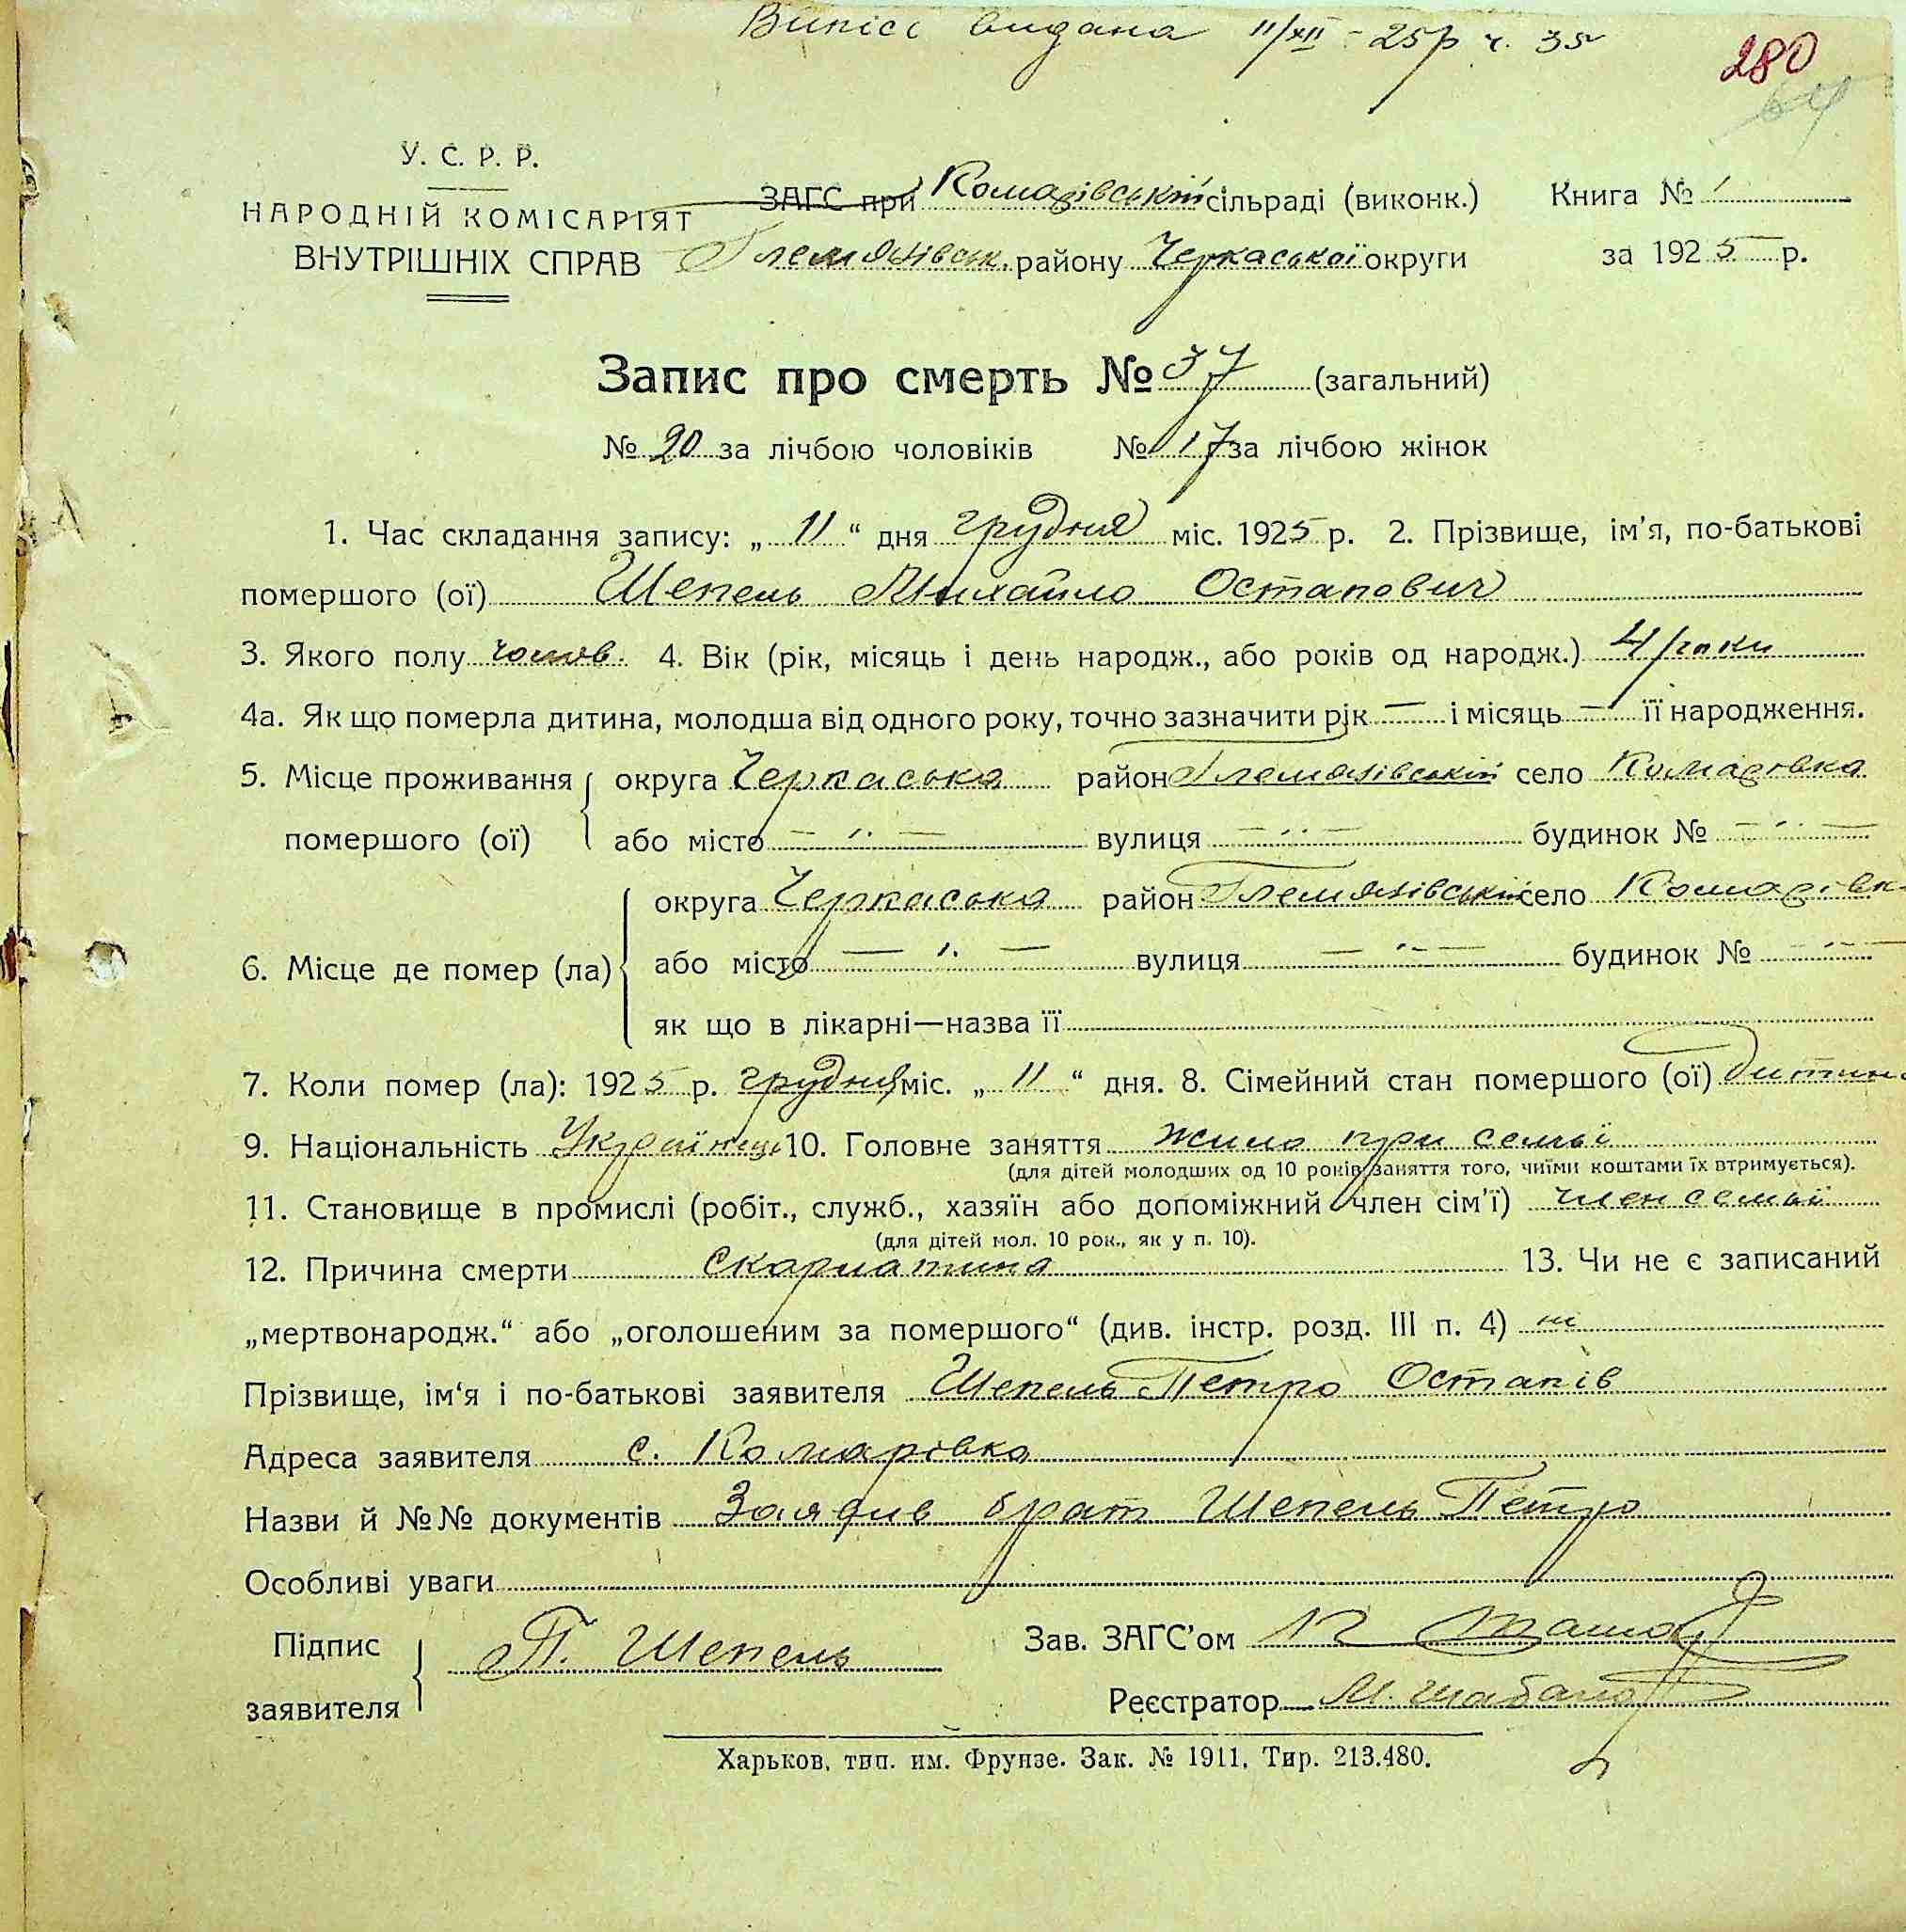 Випісь видана 11/XII - 25р ч. 35
280
64
У. С. Р. Р.
НАРОДНІЙ КОМІСАРІЯТ
ВНУТРІШНІХ СПРАВ
ЗАГС при Комарівській сільраді (виконк.) Книга № 1
Гельмязівськ. району Черкаської округи за 1925 р.
Запис про смерть № 37 (загальний)
№ 20 за лічбою чоловіків № 17 за лічбою жінок
1. Час складання запису: „ 11 “ дня грудня міс. 1925 р. 2. Прізвище, ім'я, по-батькові
помершого (ої) Шепель Михайло Остапович
3. Якого полу чолов. 4. Вік (рік, місяць і день народж., або років од народж.) 4 роки
4а. Як що померла дитина, молодша від одного року, точно зазначити рік — і місяць — її народження.
5. Місце проживання округа Черкаська район Гельмязівській село Комаровка
помершого (ої) або місто — „ — вулиця — „ — будинок № — „ —
округа Черкаська район Гельмязівській село Комарівка
6. Місце де помер (ла) або місто — „ — вулиця — „ — будинок № — „ —
як що в лікарні—назва її
7. Коли помер (ла): 1925 р. грудня міс. „ 11 “ дня. 8. Сімейний стан помершого (ої) дитина
9. Національність Українець 10. Головне заняття жило при семьї
(для дітей молодших од 10 років заняття того, чиїми коштами їх втримується).
11. Становище в промислі (робіт., служб., хазяїн або допоміжний член сім'ї) член семьї
(для дітей мол. 10 рок., як у п. 10).
12. Причина смерти Скарлатина 13. Чи не є записаний
„мертвонародж.“ або „оголошеним за помершого“ (див. інстр. розд. III п. 4) ні
Прізвище, ім'я і по-батькові заявителя Шепель Петро Остапів
Адреса заявителя с. Комарівка
Назви й №№ документів Заявив брат Шепель Петро
Особливі уваги
Підпис
заявителя П. Шепель
Зав. ЗАГС'ом
Реєстратор М.
Харьков, тип. им. Фрунзе. Зак. № 1911, Тир. 213.480.